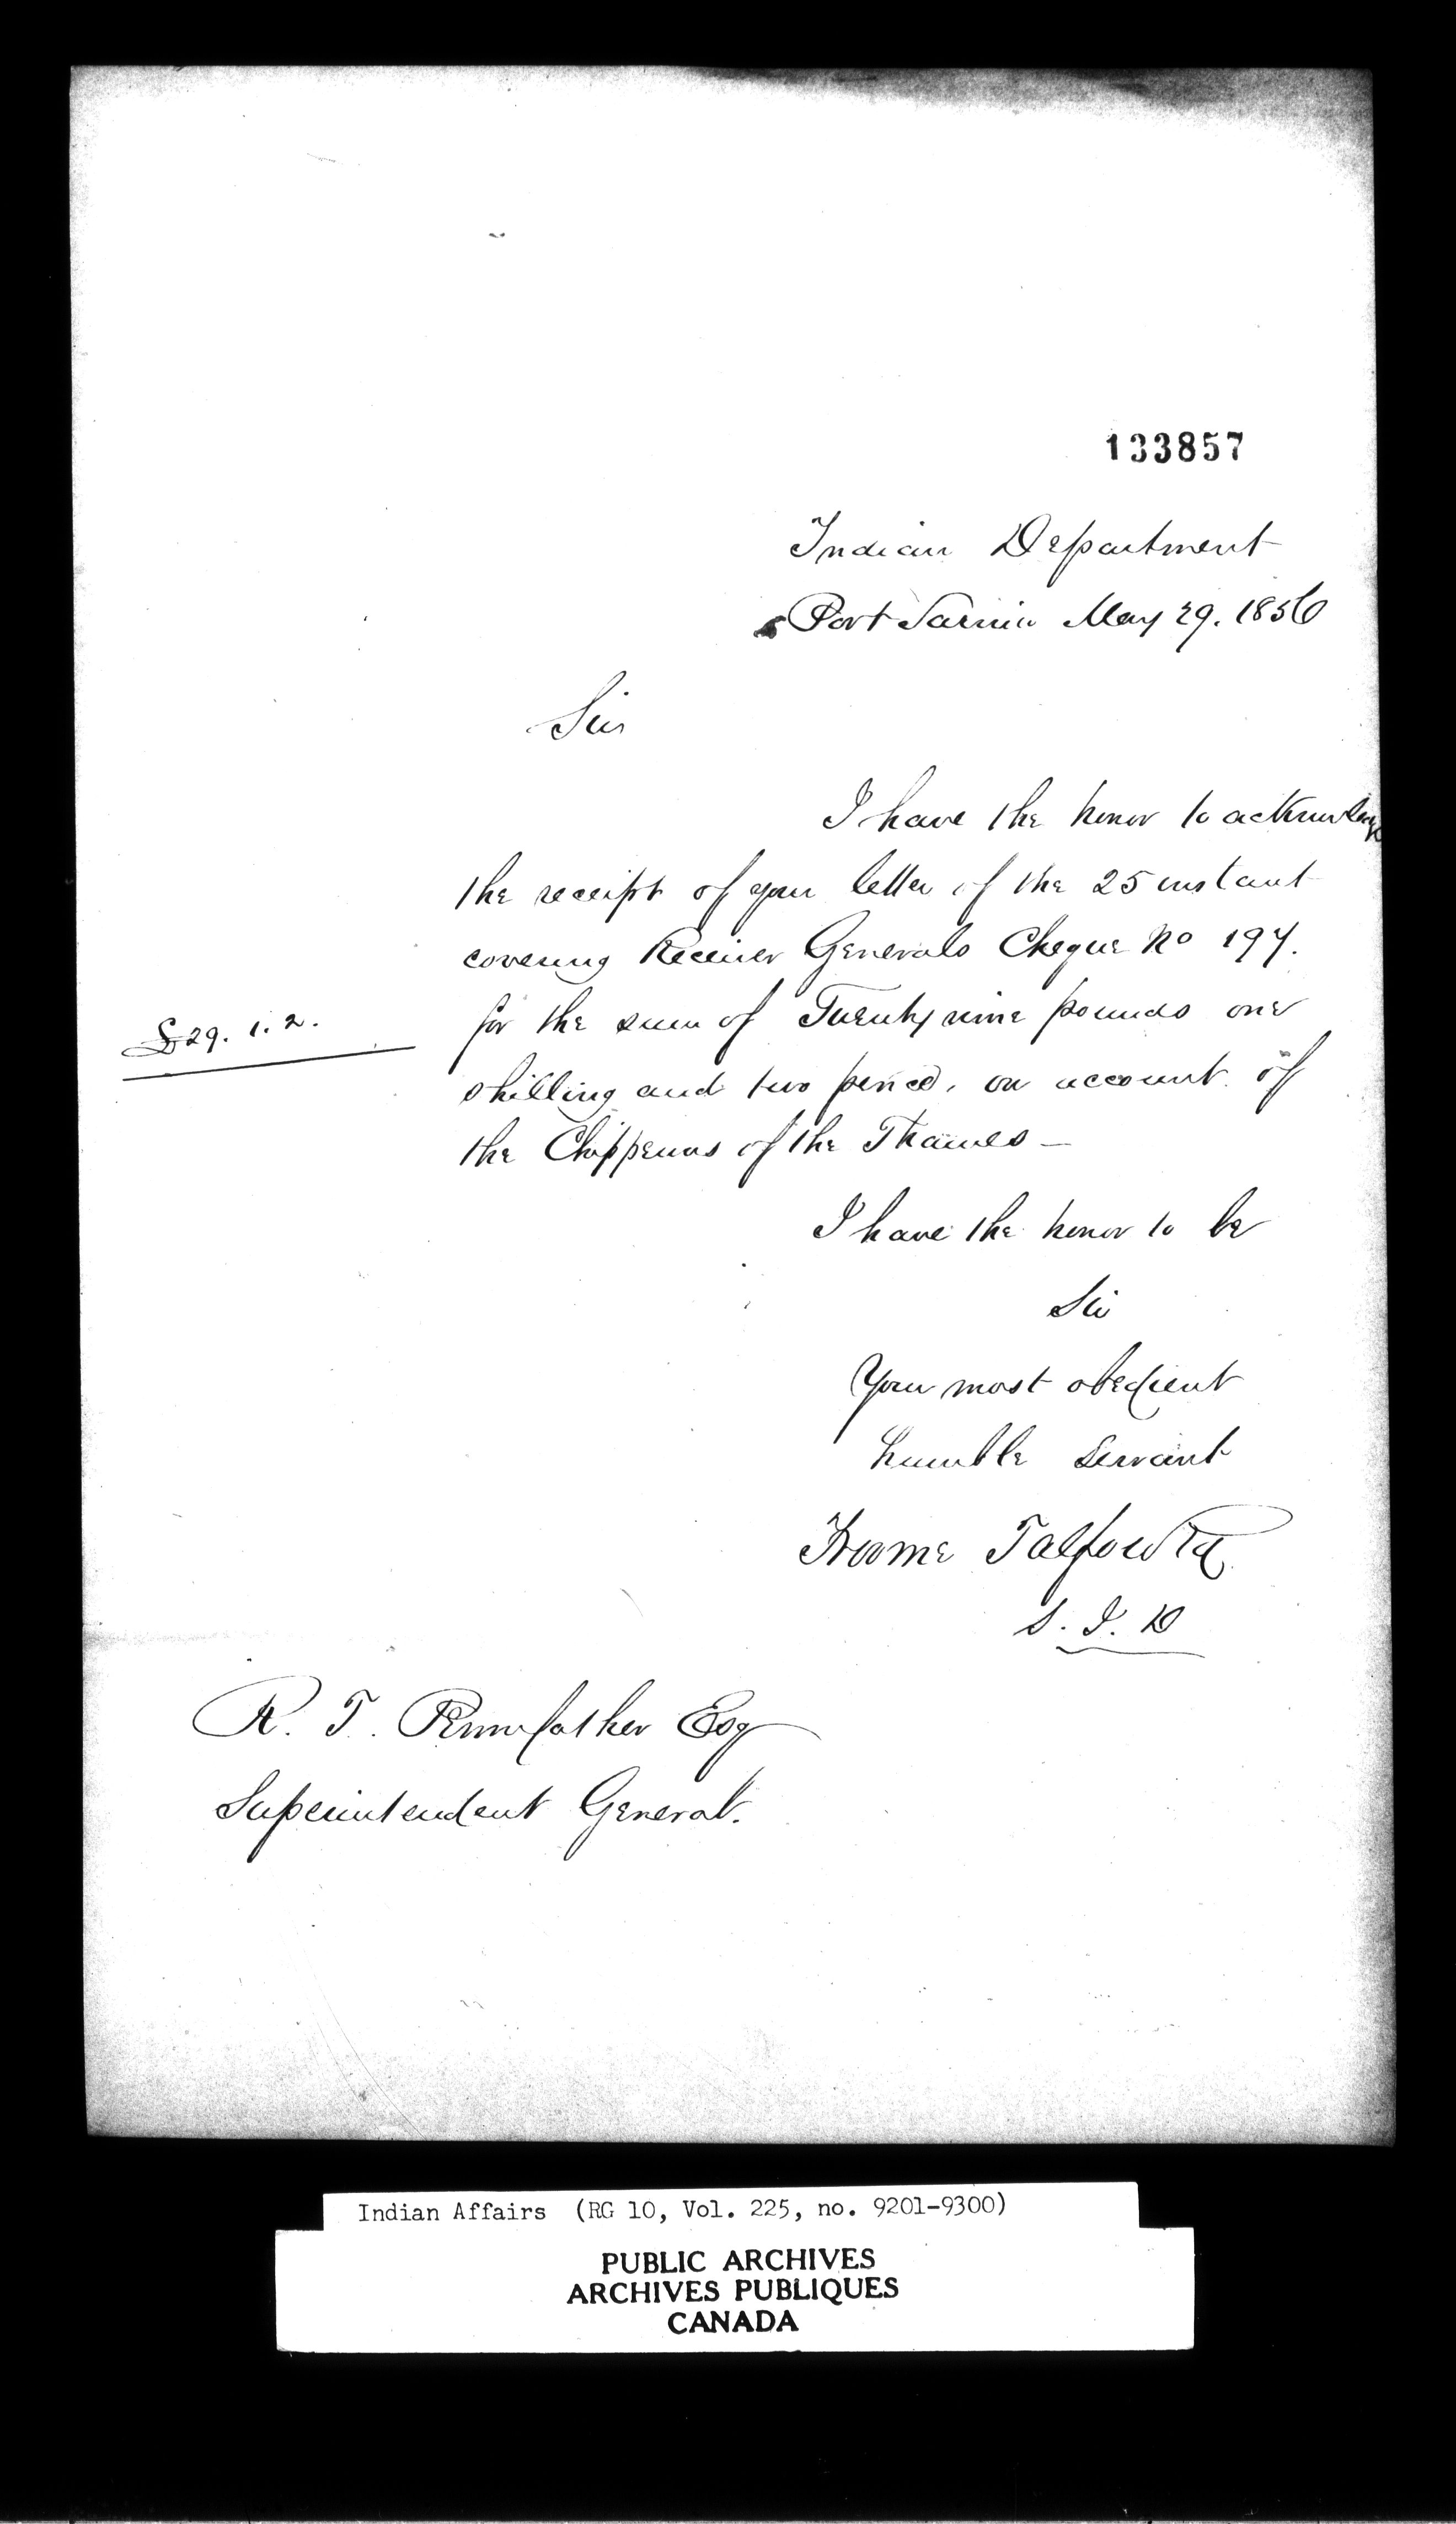 133857
Indian Department
Port Sarnia May 29. 1856
Sir
I have the honor to acknowledge
the receipt of your letter of the 25 instant
covering Receiver Generals Cheque No 197.
£29. 1. 2.
for the sum of Twenty nine pounds one
shilling and two pence, on account of
the Chippewas of the Thames —
I have the honor to be
Sir
Your most obedient
humble Servant
Froome Talfourd
S. I. D
R. T. Pennefather Esq
Superintendent General.
Indian Affairs (RG 10, Vol. 225, no. 9201-9300)
PUBLIC ARCHIVES
ARCHIVES PUBLIQUES
CANADA